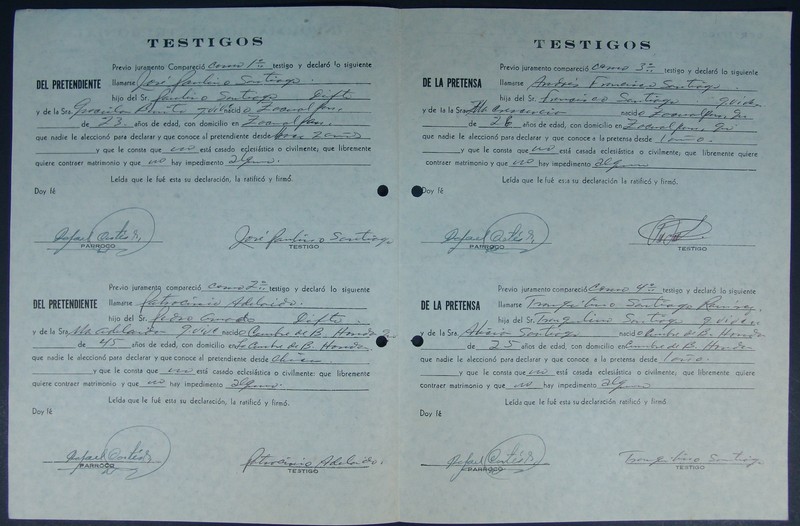 TESTIGOS
Previo juramento Compareció como 1er testigo y declaró lo siguiente
DEL PRETENDIENTE llamarse José Paulino Santiago.
hijo del Sr. Paulino Santiago
y de la Sra. que vive nació
de 23 años de edad, con domicilio en
que nadie le aleccionó para declarar y que conoce al pretendiente desde hace 2 años
y que le consta que no está casado eclesiástica o civilmente; que libremente
quiere contraer matrimonio y que no hay impedimento alguno.
Leída que le fué esta su declaración, la ratificó y firmó.
Doy fé
Rafael Cortés
PARROCO
José Paulino Santiago
TESTIGO
Previo juramento compareció como 2o testigo y declaró lo siguiente
DEL PRETENDIENTE llamarse Patrocinio Adelaido.
hijo del Sr. Pedro
y de la Sra. Ma. q. vive nació Cumbre de B. Honda
de 45 años de edad, con domicilio en Cumbre de B. Honda
que nadie le aleccionó para declarar y que conoce al pretendiente desde
y que le consta que no está casado eclesiástica o civilmente: que libremente
quiere contraer matrimonio y que no hay impedimento alguno.
Leída que le fué esta su declaración, la ratificó y firmó.
Doy fé
Rafael Cortés
PARROCO
Patrocinio Adelaido.
TESTIGO
TESTIGOS
Previo juramento compareció como 3er testigo y declaró lo siguiente
DE LA PRETENSA llamarse Andrés Francisco Santiago
hija del Sr. Francisco Santiago q. vive
y de la Sra. Ma. nació
de 26 años de edad, con domicilio en
que nadie le aleccionó para declarar y que conoce a la pretensa desde 1 año.
y que le consta que no está casada eclesiástica o civilmente; que libremente quiere
contraer matrimonio y que no hay impedimento alguno
Leída que le fué esta su declaración, la ratificó y firmó.
Doy fé
Rafael Cortés
PARROCO
TESTIGO
Previo juramento compareció como 4o testigo y declaró lo siguiente
DE LA PRETENSA llamarse Tranquilino Santiago Ramírez.
hijo del Sr. Tranquilino Santiago q. vive
y de la Sra. Santiago nació Cumbre de B. Honda
de 25 años de edad, con domicilio en Cumbre de B. Honda
que nadie le aleccionó para declarar y que conoce a la pretensa desde 1 año.
y que le consta que no está casada eclesiástica o civilmente; que libremente quiere
contraer matrimonio y que no hay impedimento alguno
Leída que le fué esta su declaración ratificó y firmó.
Doy fé
Rafael Cortés
PARROCO
Tranquilino Santiago
TESTIGO